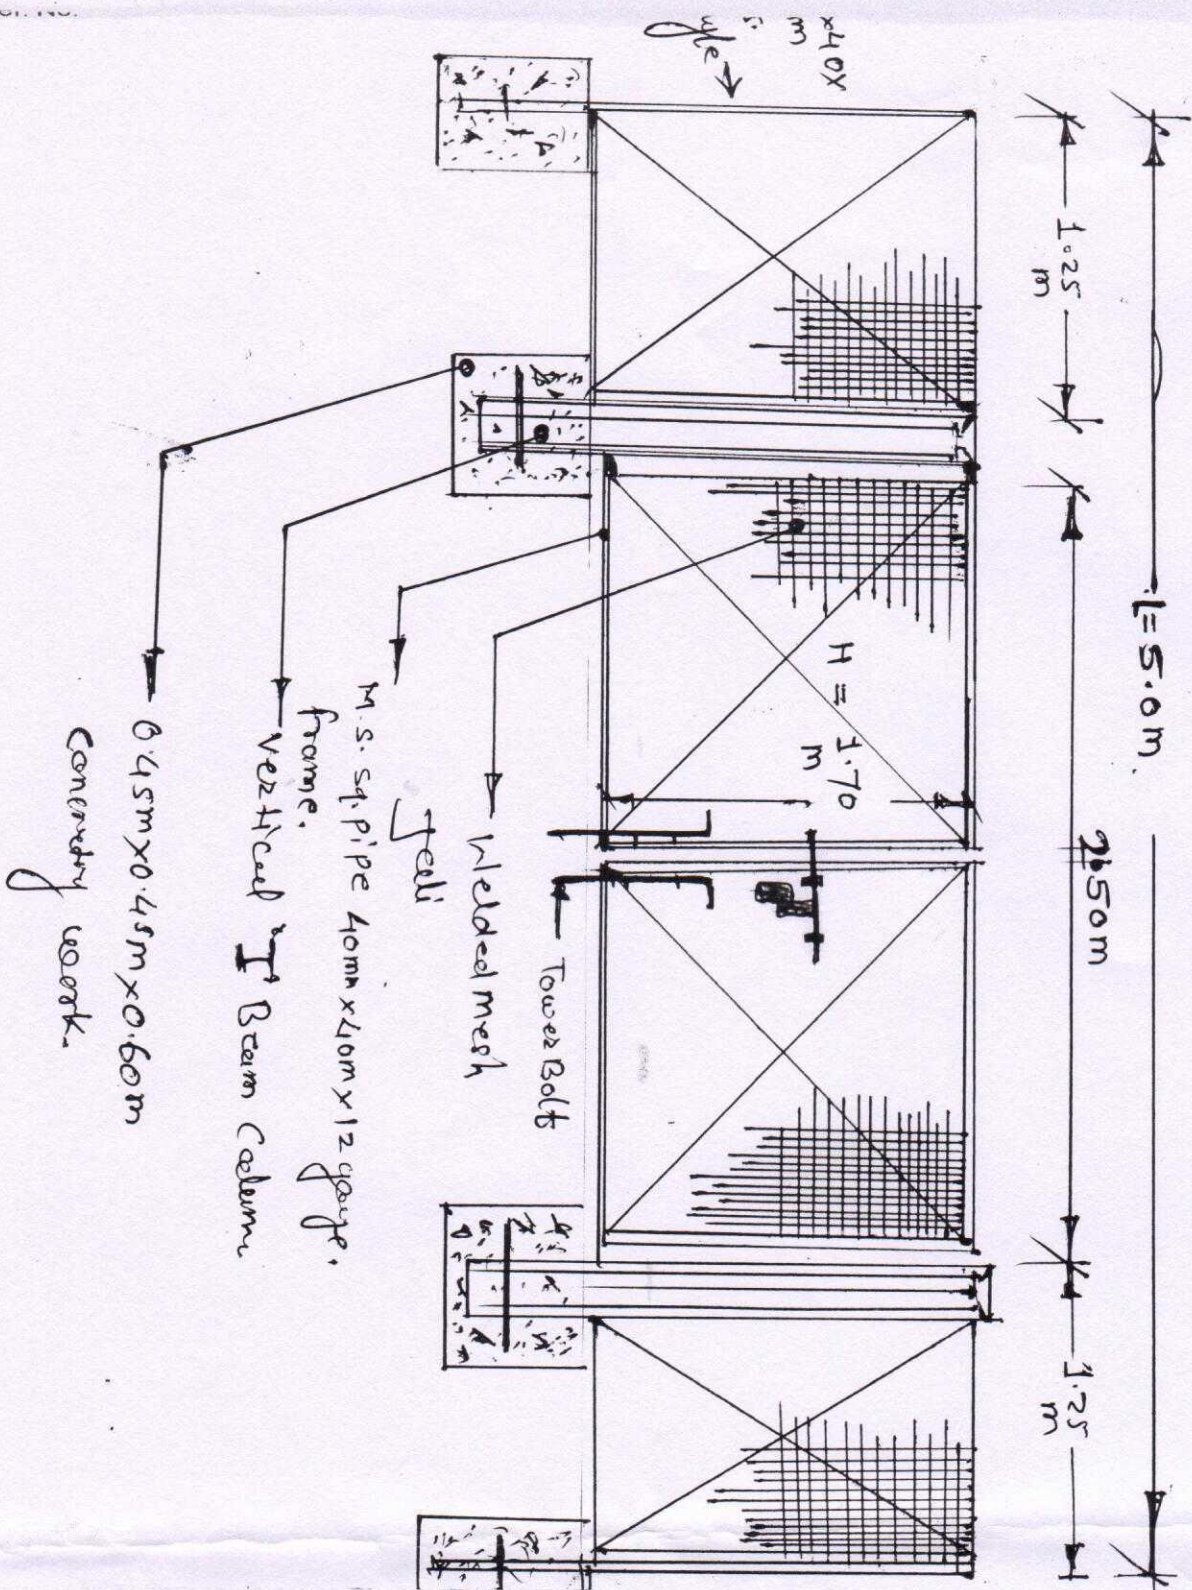 L = 5.0 m
1.25
m
2.50m
1.25
m
H = 1.70
m
x40X
m
Tower Bolt
Welded mesh
Jali
M.S. Sq. pipe 40mm x 40m x 12 gauge.
frame.
vertical "I" Beam Column
0.45m x 0.45m x 0.60m
work.